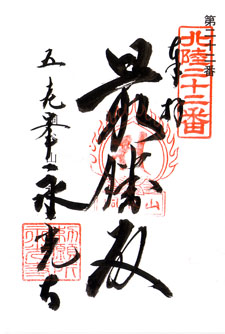 第二十二番
北陸二十二番
奉拝
最勝殿
五老峯
永光寺